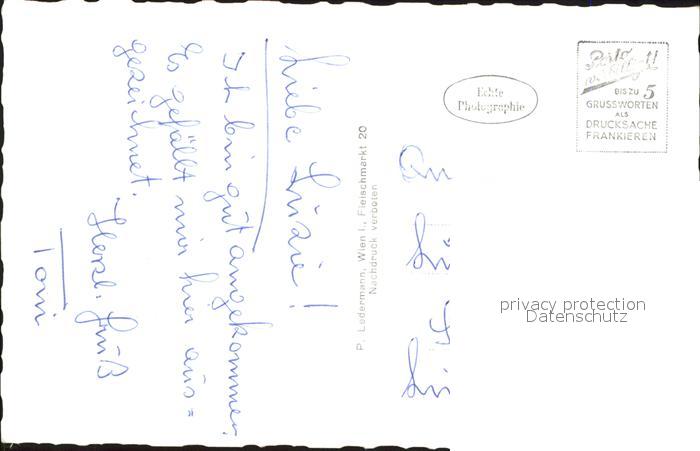 Liebe Luzie!
Ich bin gut angekommen.
Es gefällt mir hier aus=
gezeichnet.
Herzl. Gruß
Toni
P. Ledermann, Wien I., Fleischmarkt 20
Nachdruck verboten
Echte
Photographie
Porto
BIS ZU 5
GRUSSWORTEN
ALS
DRUCKSACHE
FRANKIEREN
privacy protection
Datenschutz